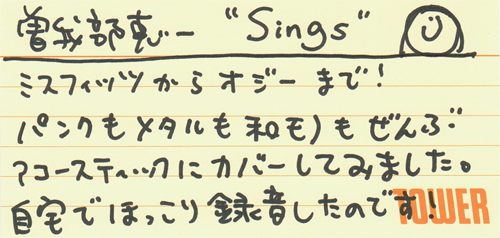 曽我部恵一 "Sings"
ミスフィッツからオジーまで!
パンクもメタルも和モノもぜんぶ
アコースティックにカバーしてみました。
自宅でほっこり録音したのです!
TOWER